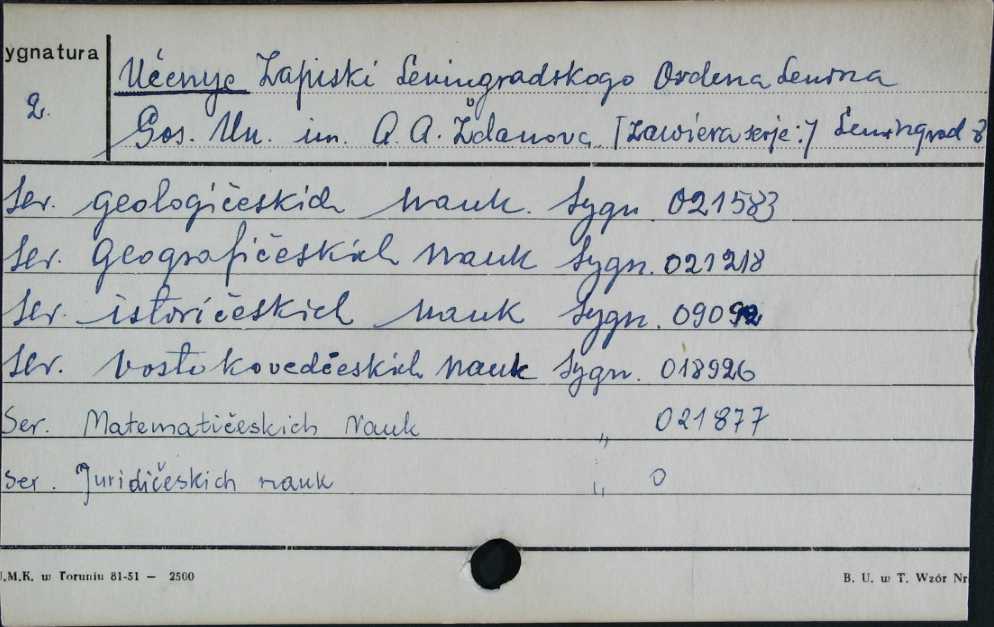 ygnatura
2.
Učenye Zapiski Leningradskogo Ordena Lenina
Gos. Un. im. A. A. Ždanova [zawiera serje:] Leningrad
Ser. geologičeskich nauk. Sygn 021583
Ser. Geografičeskich nauk Sygn. 021218
Ser. istoričeskich nauk Sygn.
Ser. vostokovedčeskich nauk Sygn. 018926
Ser. Matematičeskich Nauk " 021877
Ser. Juridičeskich nauk " 0
U.M.K. w Toruniu 81-51 — 2500
B. U. w T. Wzór Nr